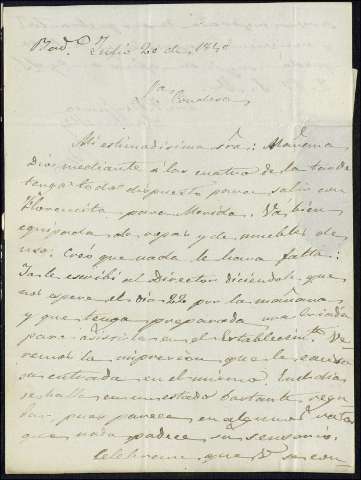 Bad.z Julio 20 de 18
Sra. Condesa
Mi estimadisima sra: Mañana
Dios mediante á las cuatro de la tarde
tengo todo dispuesto para salir con
Florencita para Merida. Vá bien
equipada de ropas y de muebles de
uso. Creó que nada le hará falta.
Ya le escribí al Director diciéndole que
nos espere el dia 22 por la mañana
y que tenga preparada una criada
para asistirla en el Establecimto. Ve
remos la impresion que le causa
su entrada en el mismo. En el dia
se halla en un estado bastante regu
lar pues parece en algunos ratos
que nada padece su sensorio.
Celebrare que V. se con